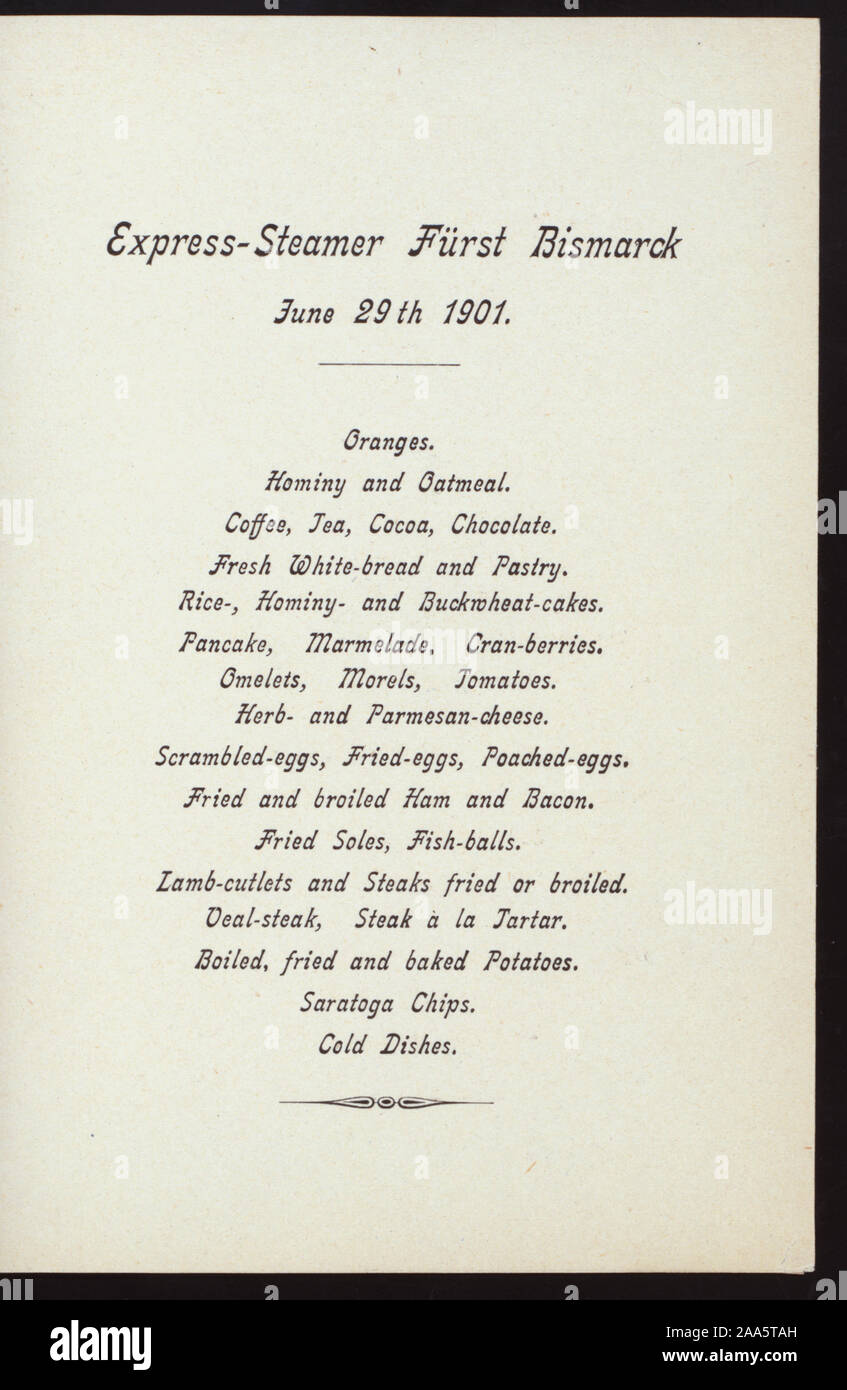 alamy
Express-Steamer Fürst Bismarck
June 29th 1901.
Oranges.
Hominy and Oatmeal.
Coffee, Tea, Cocoa, Chocolate.
Fresh White-bread and Pastry.
Rice-, Hominy- and Buckwheat-cakes.
Pancake, Marmelade, Cran-berries.
Omelets, Morels, Tomatoes.
Herb- and Parmesan-cheese.
Scrambled-eggs, Fried-eggs, Poached-eggs.
Fried and broiled Ham and Bacon.
Fried Soles, Fish-balls.
Lamb-cutlets and Steaks fried or broiled.
Veal-steak, Steak à la Tartar.
alamy
Boiled, fried and baked Potatoes.
Saratoga Chips.
Cold Dishes.
alamy
Image ID: 2AA5TAH
www.alamy.com